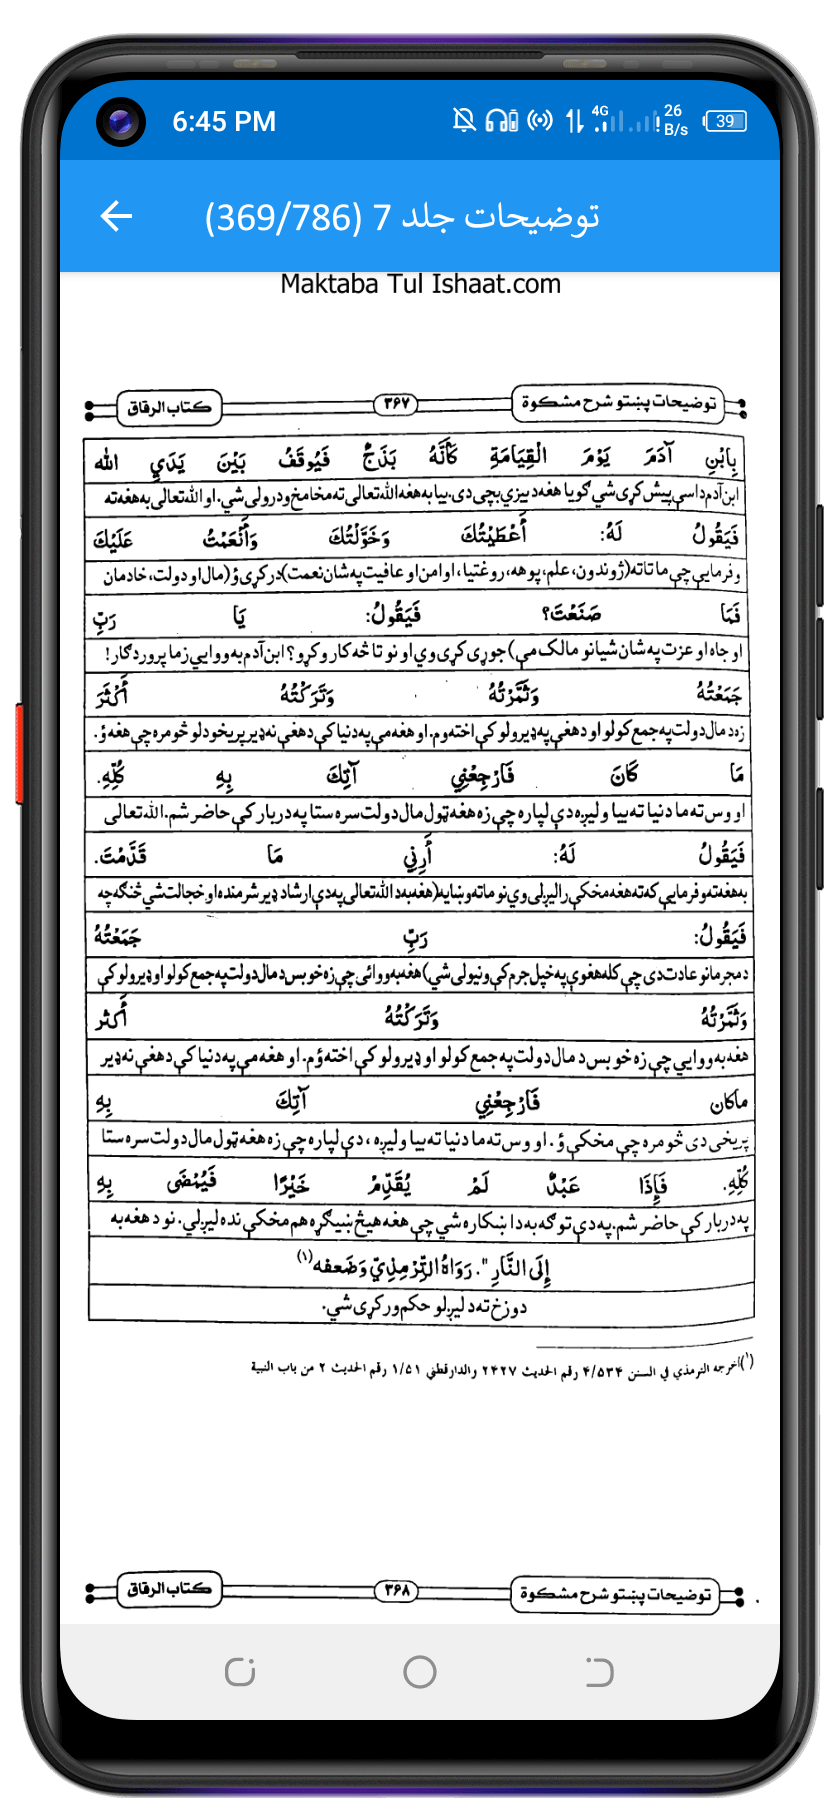 6:45 PM
4G
26
B/s
39
توضیحات جلد 7 (369/786)
Maktaba Tul Ishaat.com
توضیحات پښتو شرح مشکوة
۳۶۷
کتاب الرقاق
بِابْنِ آدَمَ يَوْمَ الْقِيَامَةِ كَأَنَّهُ بَذَجٌ فَيُوقَفُ بَيْنَ يَدَيِ الله
ابن آدم داسې پیش کړی شي ګویا هغه د بیزې بچی دی. بیا به هغه الله تعالی ته مخامخ ودرولی شي. او الله تعالی به هغه ته
فَيَقُولُ لَهُ: أَعْطَيْتُكَ وَخَوَّلْتُكَ وَأَنْعَمْتُ عَلَيْكَ
وفرمایې چې ما تا ته (ژوندون، علم، پوهه، روغتیا، او امن او عافیت په شان نعمت) درکړی ؤ (مال او دولت، خادمان
فَمَا صَنَعْتَ؟ فَيَقُولُ: يَا رَبِّ
او جاه او عزت په شان شیانو مالک مې) جوړی کړی وي او نو تا څه کار وکړو؟ ابن آدم به ووایي زما پروردګار!
جَمَعْتُهُ وَثَمَّرْتُهُ وَتَرَكْتُهُ أَكْثَرَ
زه د مال دولت په جمع کولو او د هغې په ډیرولو کې اخته وم. او هغه مې په دنیا کې د هغې نه ډیر پریخودلو څومره چې هغه ؤ.
مَا كَانَ فَارْجِعْنِي آتِكَ بِهِ كُلِّهِ.
او وس ته ما دنیا ته بیا ولیږه دې لپاره چې زه هغه ټول مال دولت سره ستا په دربار کې حاضر شم. الله تعالی
فَيَقُولُ لَهُ: أَرِنِي مَا قَدَّمْتَ.
به هغه ته وفرمایې که ته هغه مخکې رالیږلی وي نو ما ته وښایه (هغه به د الله تعالی په دې ارشاد ډیر شرمنده او خجالت شي څنګه چه
فَيَقُولُ: رَبِّ جَمَعْتُهُ
د مجرمانو عادت دی چې کله هغوې په خپل جرم کې ونیولی شي) هغه به ووائی چې زه خو بس د مال دولت په جمع کولو او ډیرولو کې
وَثَمَّرْتُهُ وَتَرَكْتُهُ أَكثر
هغه به ووایي چې زه خو بس د مال دولت په جمع کولو او ډیرولو کې اخته ؤم. او هغه مې په دنیا کې د هغې نه ډیر
ماكان فَارْجِعْنِي آتِكَ بِهِ
پریخی دی څومره چې مخکې ؤ. او وس ته ما دنیا ته بیا ولیږه، دې لپاره چې زه هغه ټول مال دولت سره ستا
كُلِّهِ. فَإِذَا عَبْدٌ لَمْ يُقَدِّمْ خَيْرًا فَيُمْضَى بِهِ
په دربار کې حاضر شم. په دې توګه به دا ښکاره شي چې هغه هیڅ ښیګړه هم مخکې نده لیږلي. نو د هغه به
إِلَى النَّارِ". رَوَاهُ التِّرْمِذِيّ وَضَعفه (۱)
دوزخ ته د لیږلو حکم ورکړی شي.
(۱) أخرجه الترمذي في السنن ۴/۵۳۴ رقم الحديث ۲۴۲۷ والدارقطني ۱/۵۱ رقم الحديث ۲ من باب النية
توضیحات پښتو شرح مشکوة
۳۶۸
کتاب الرقاق